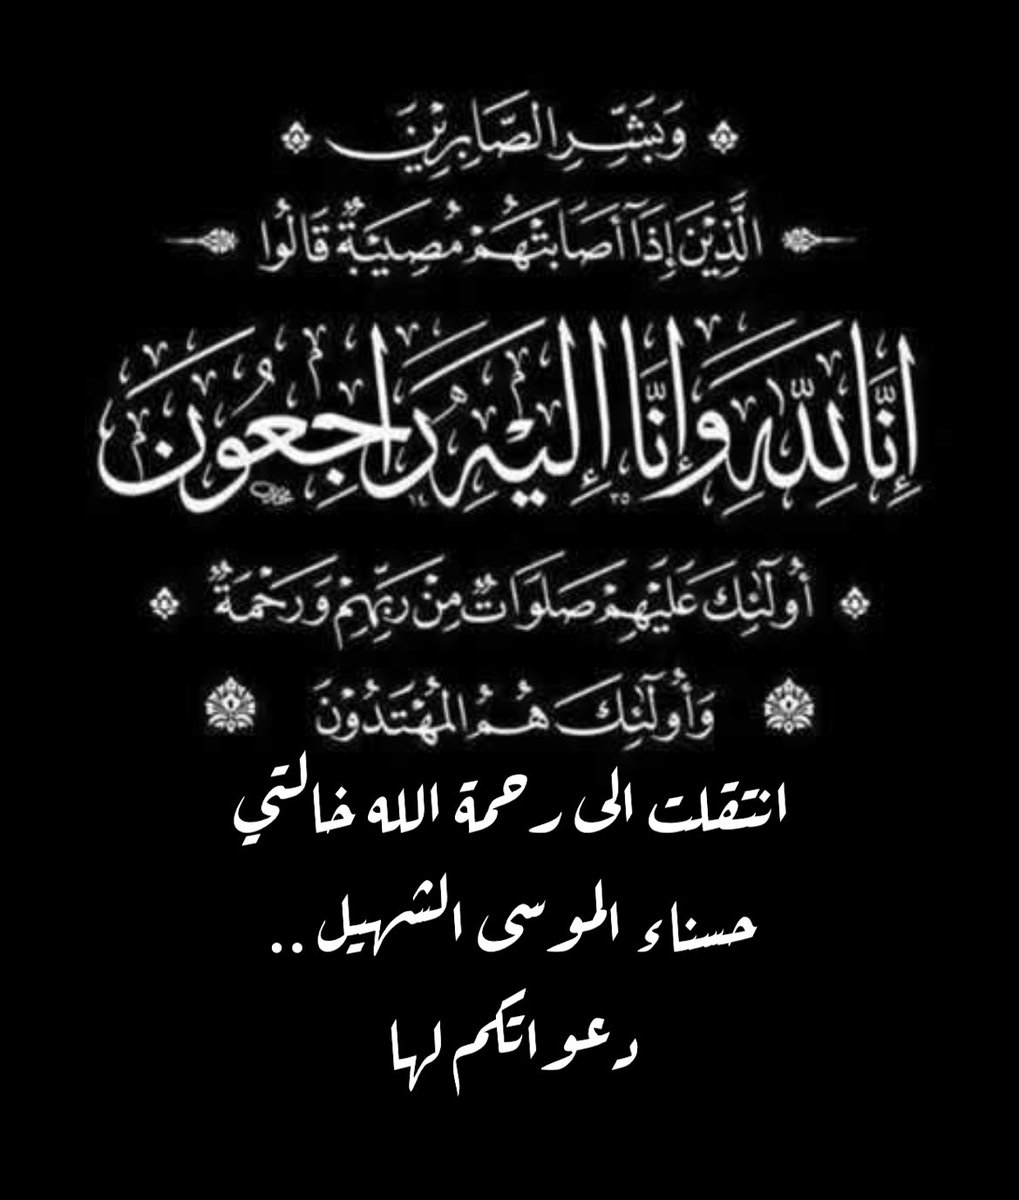 وَبَشِّرِ الصَّابِرِيْنَ
الَّذِيْنَ إِذَآ أَصَابَتْهُمْ مُصِيَبَةٌ قَالُوا
إِنَّا لِلّٰهِ وَإِنَّا إِلَيْهِ رَاجِعُونَ
أُولَٰئِكَ عَلَيْهِمْ صَلَوَاتٌ مِنْ رَبِّهِمْ وَرَحْمَةٌ
وَأُولَٰئِكَ هُمُ الْمُهْتَدُوْنَ
انتقلت الى رحمة الله خالتي
حسناء الموسى الشهيل ..
دعواتكم لها